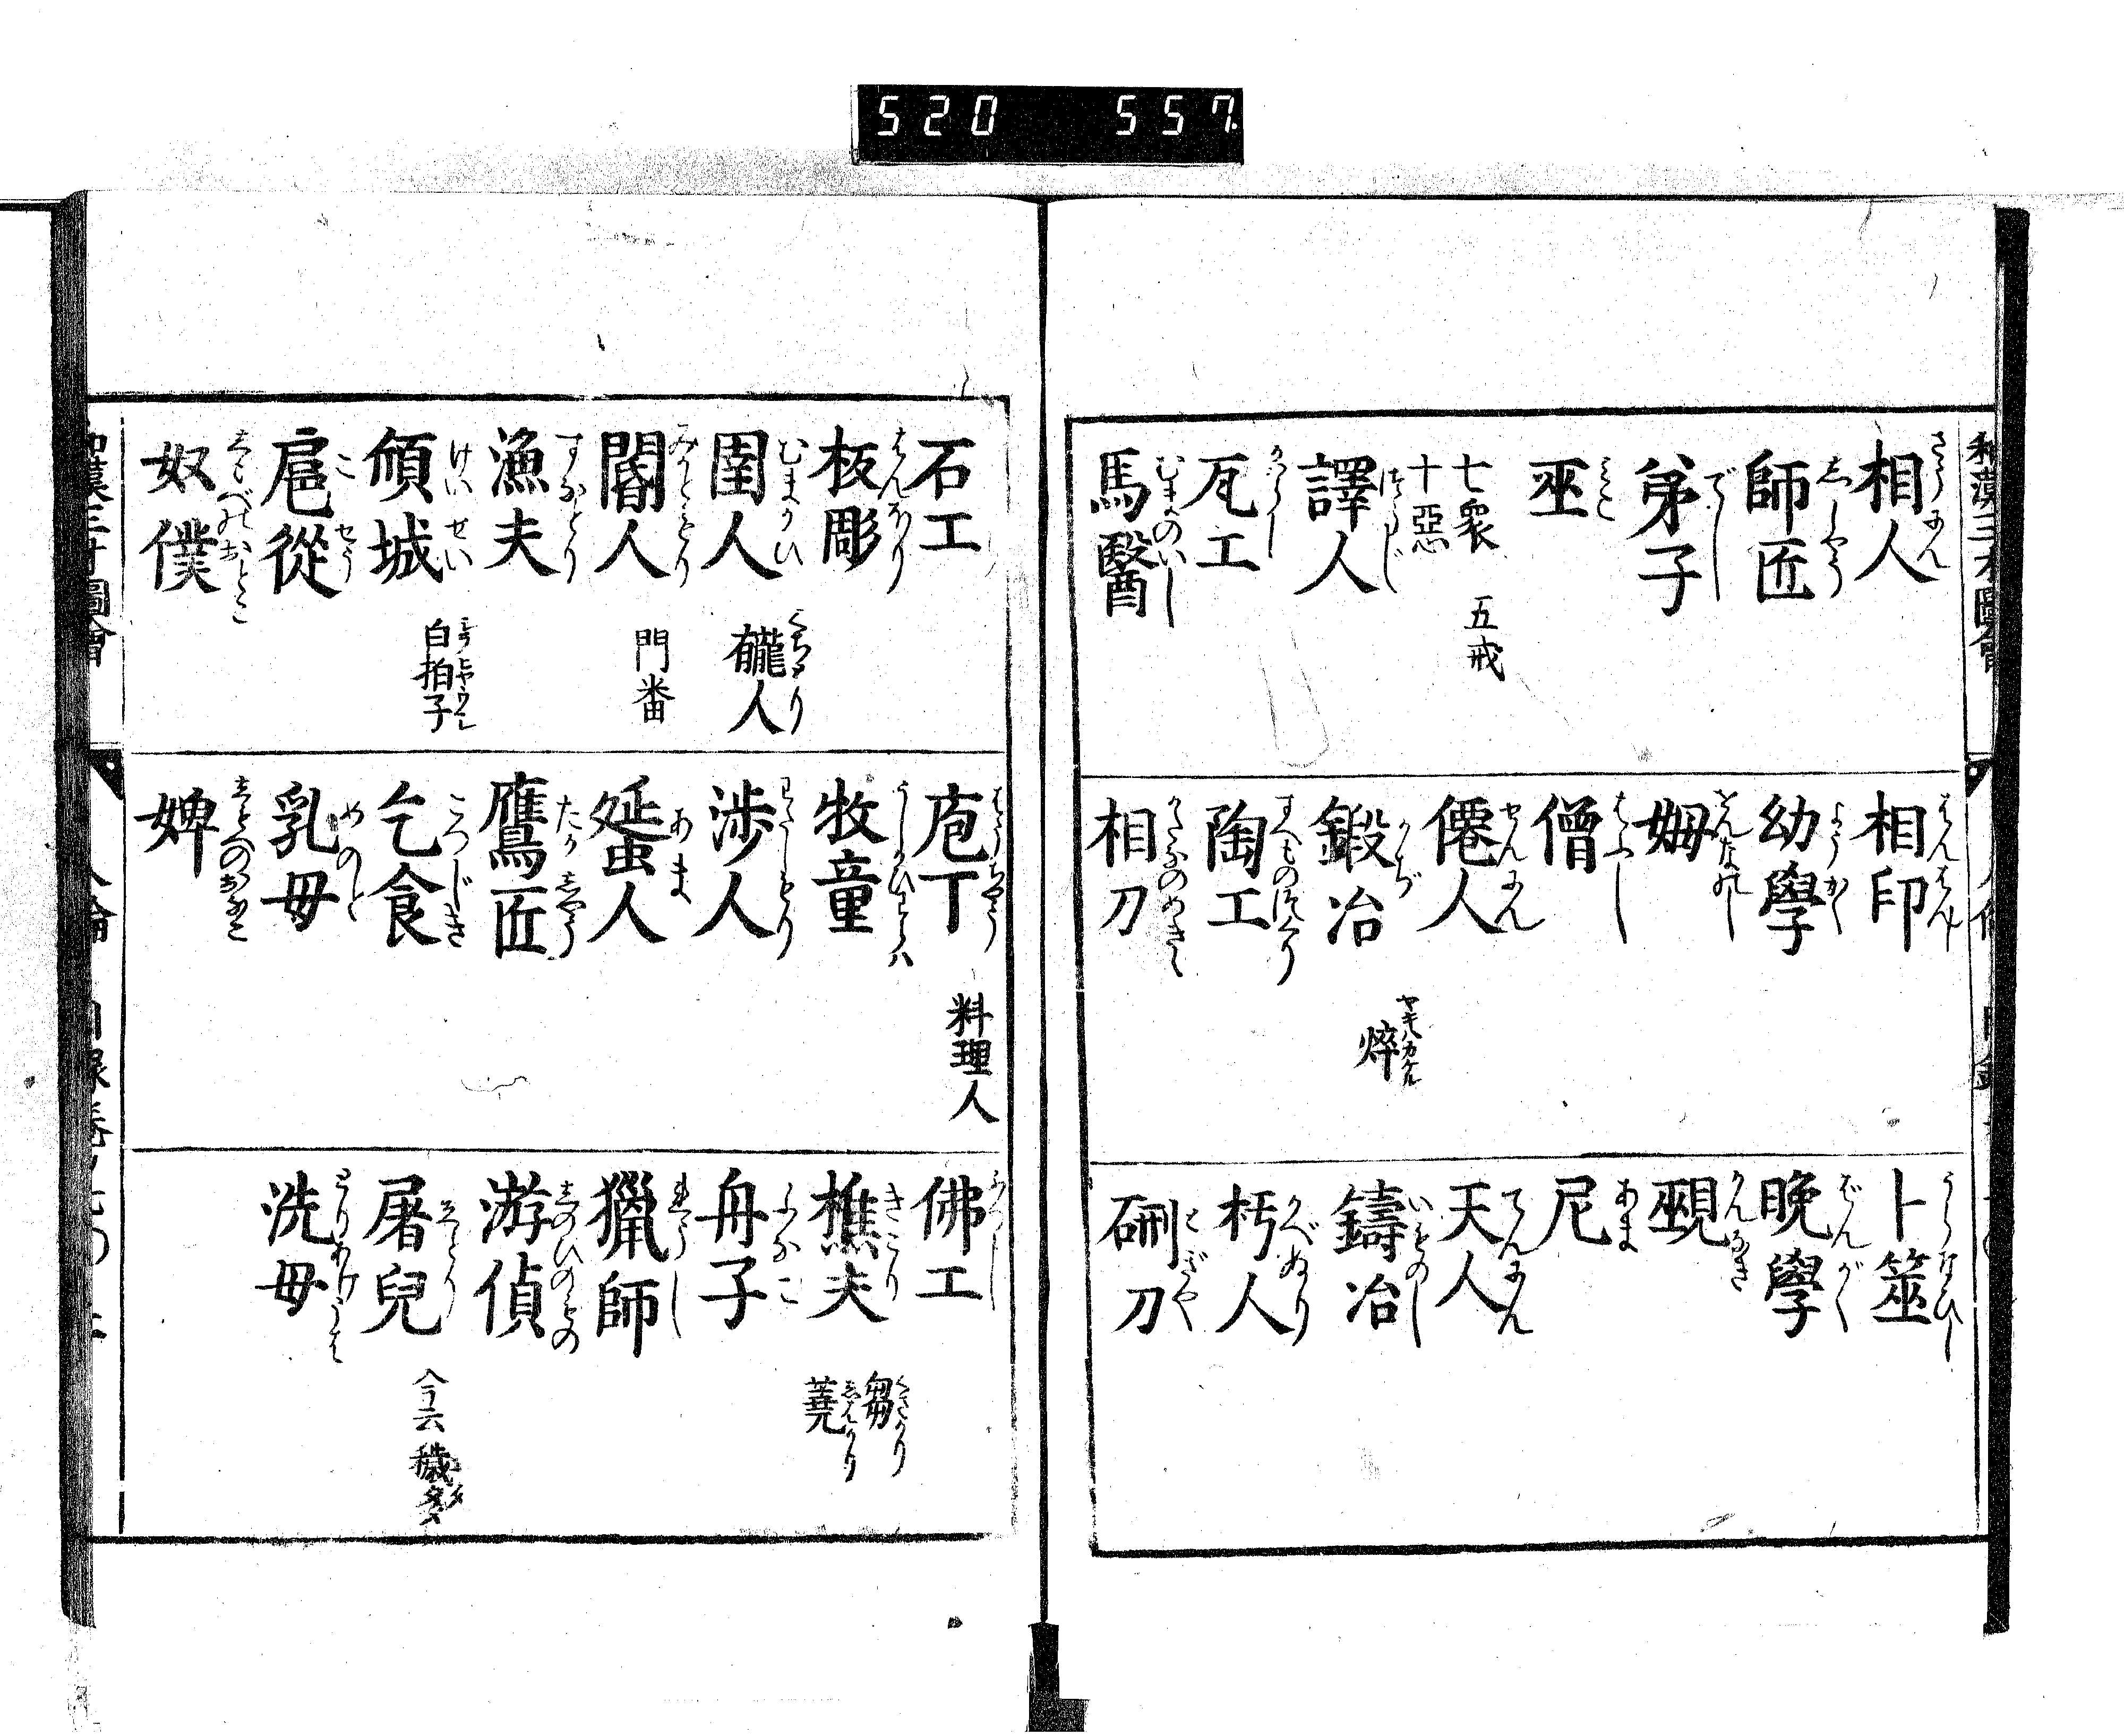 520 557
和漢三才圖會
相人 さうにん
師匠 ししやう
弟子 でし
巫 みこ
七衆 五戒
十惡
譯人 つうじ
瓦工
馬醫 むまのいし
相印 はんはん
幼學 ようがく
姆
僧 ほうし
僊人 せんにん
鍛冶 かぢ 焠 ヤキハカケル
陶工 すへものつくり
相刀 かたなのめきき
卜筮 うらなひし
晚學 ばんがく
覡 かんなき
尼 あま
天人 てんにん
鑄冶 いものし
杇人 かべぬり
硎刀 とぎや
石工
板彫 はんほり
圉人 むまかひ 儱人 くちとり
閽人 みかともり 門番
漁夫 すなとり
傾城 けいせい 白拍子
扈從 こせう
奴僕 しもべのおとこ
庖丁 料理人
牧童 うしかひわらハ
渉人 わたしもり
蜑人 あま
鷹匠 たかしやう
乞食 こつじき
乳母 めのと
婢 しもべのおんな
佛工 ぶつし
樵夫 きこり 芻 くさかり
蕘 しバかり
舟子 ふなこ
獵師 れうし
游偵 しのひのもの
屠兒 ゑとり 今云穢多
洗母 とりあげうば
和漢三才圖會 人倫